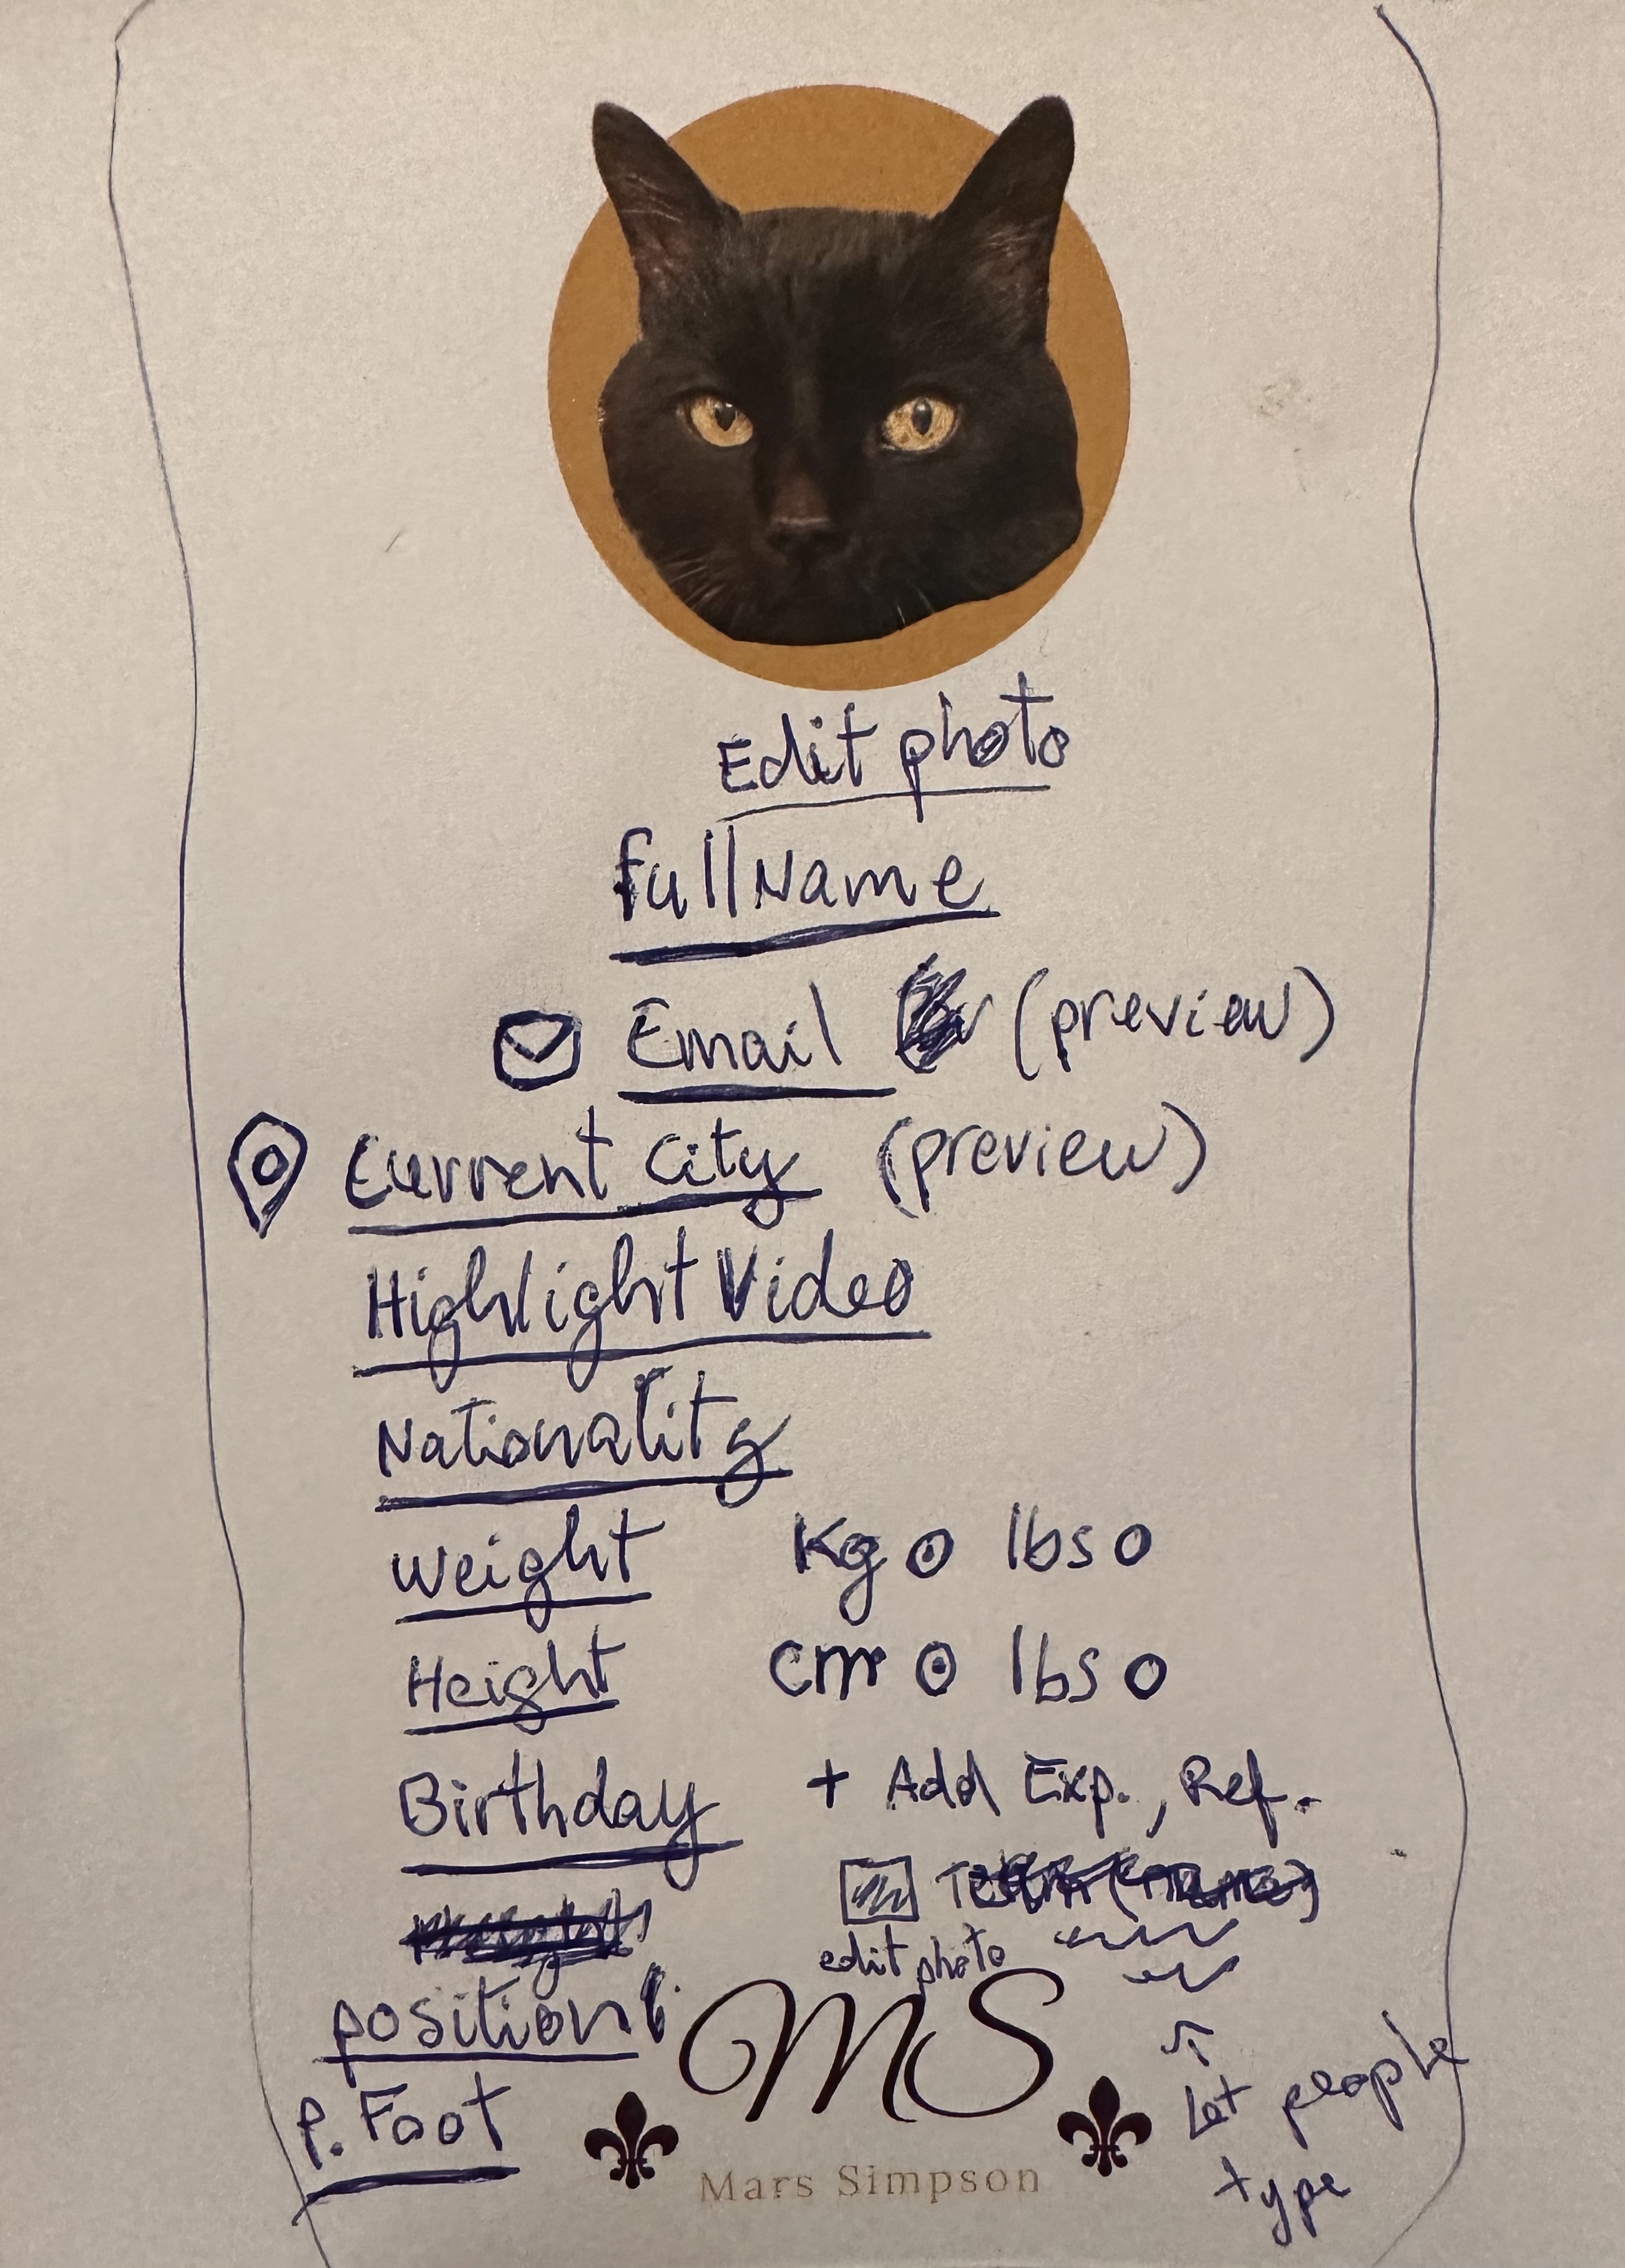 Edit photo
Full Name
Email (preview)
Current City (preview)
Highlight Video
Nationality
Weight Kg lbs
Height cm lbs
Birthday + Add Exp., Ref.
edit photo
position
P. Foot
MS
Mars Simpson
Let people
type